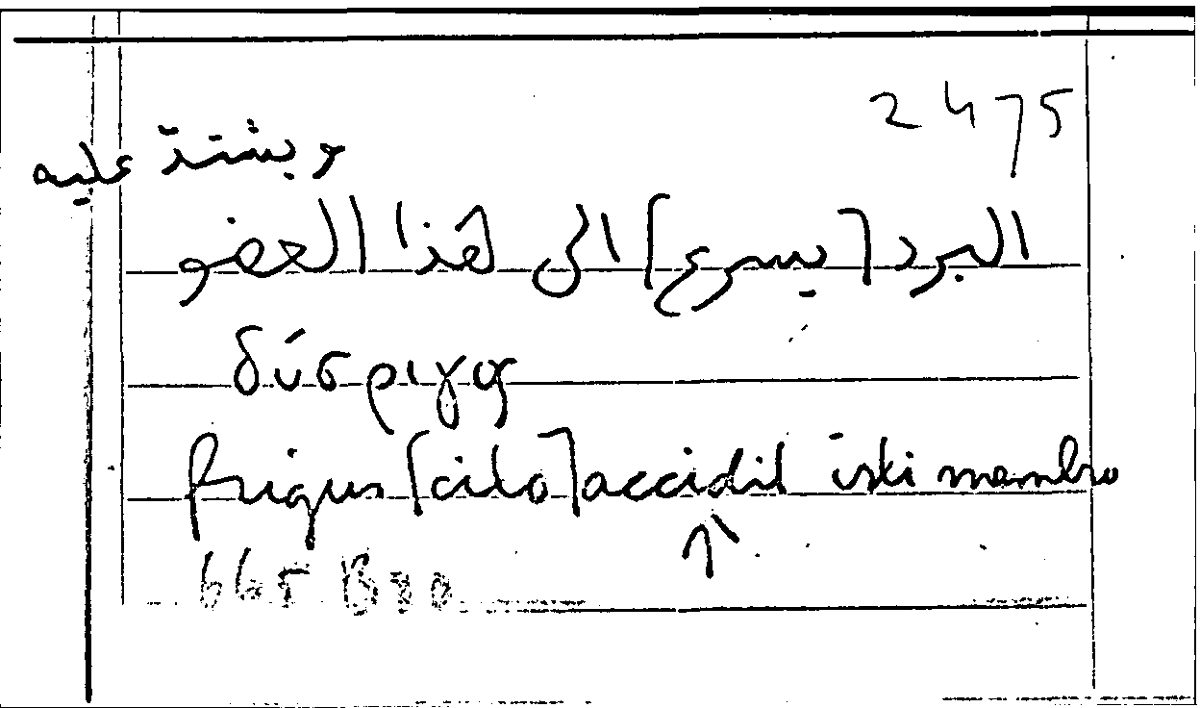 2475
ويشتدّ عليه
البرد [يسرع] الى هذا العضو
δύσριγος
frigus [cito] accidit isti membro
↑
665 B30